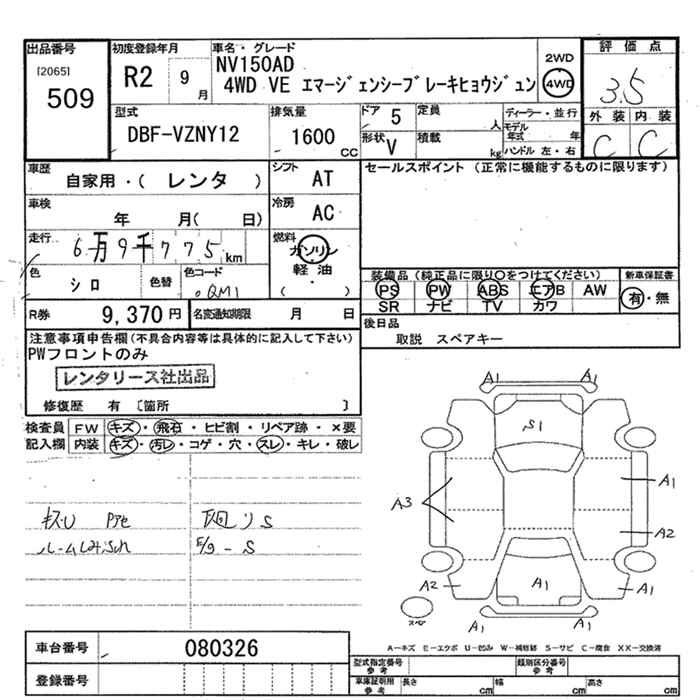 出品番号 初度登録年月 車名・グレード 評価点
[2065] 509 R2 9月 NV150AD 2WD 3.5
4WD VE エマージェンシーブレーキヒョウジュン 4WD
型式 排気量 ドア 定員 ディーラー・並行 外装 内装
DBF-VZNY12 1600CC 5 人 モデル年式 年 C C
形状 V 積載 kg ハンドル 左・右
車歴 自家用・( レンタ ) シフト AT セールスポイント (正常に機能するものに限ります)
車検 年 月( 日) 冷房 AC
走行 6万9千775km 燃料 ガソリン
軽油
・
( )
色 シロ 色替 色コード QM1
装備品 (純正品に限り○をつけてください) 新車保証書
PS PW ABS エアB AW 有・無
SR ナビ TV カワ
R券 9,370円 名変通知期限 月 日
後日品
取説 スペアキー
注意事項申告欄(不具合内容等は具体的に記入して下さい)
PWフロントのみ
レンタリース社出品
修復歴 有 〔箇所 〕
検査員 FW キズ・飛石・ヒビ割・リペア跡・×要
記入欄 内装 キズ・汚レ・コゲ・穴・スレ・キレ・破レ
A1 A1
S1
A3 A1
A2
A2 A1 A1
A1 A1
スペア
A-キズ E-エクボ U-凹み W-補修跡 S-サビ C-腐食 XX-交換済
車台番号 080326
登録番号
型式指定番号 参考 類別区分番号 参考
車庫証明用 参考 長さ cm 幅 cm 高さ cm